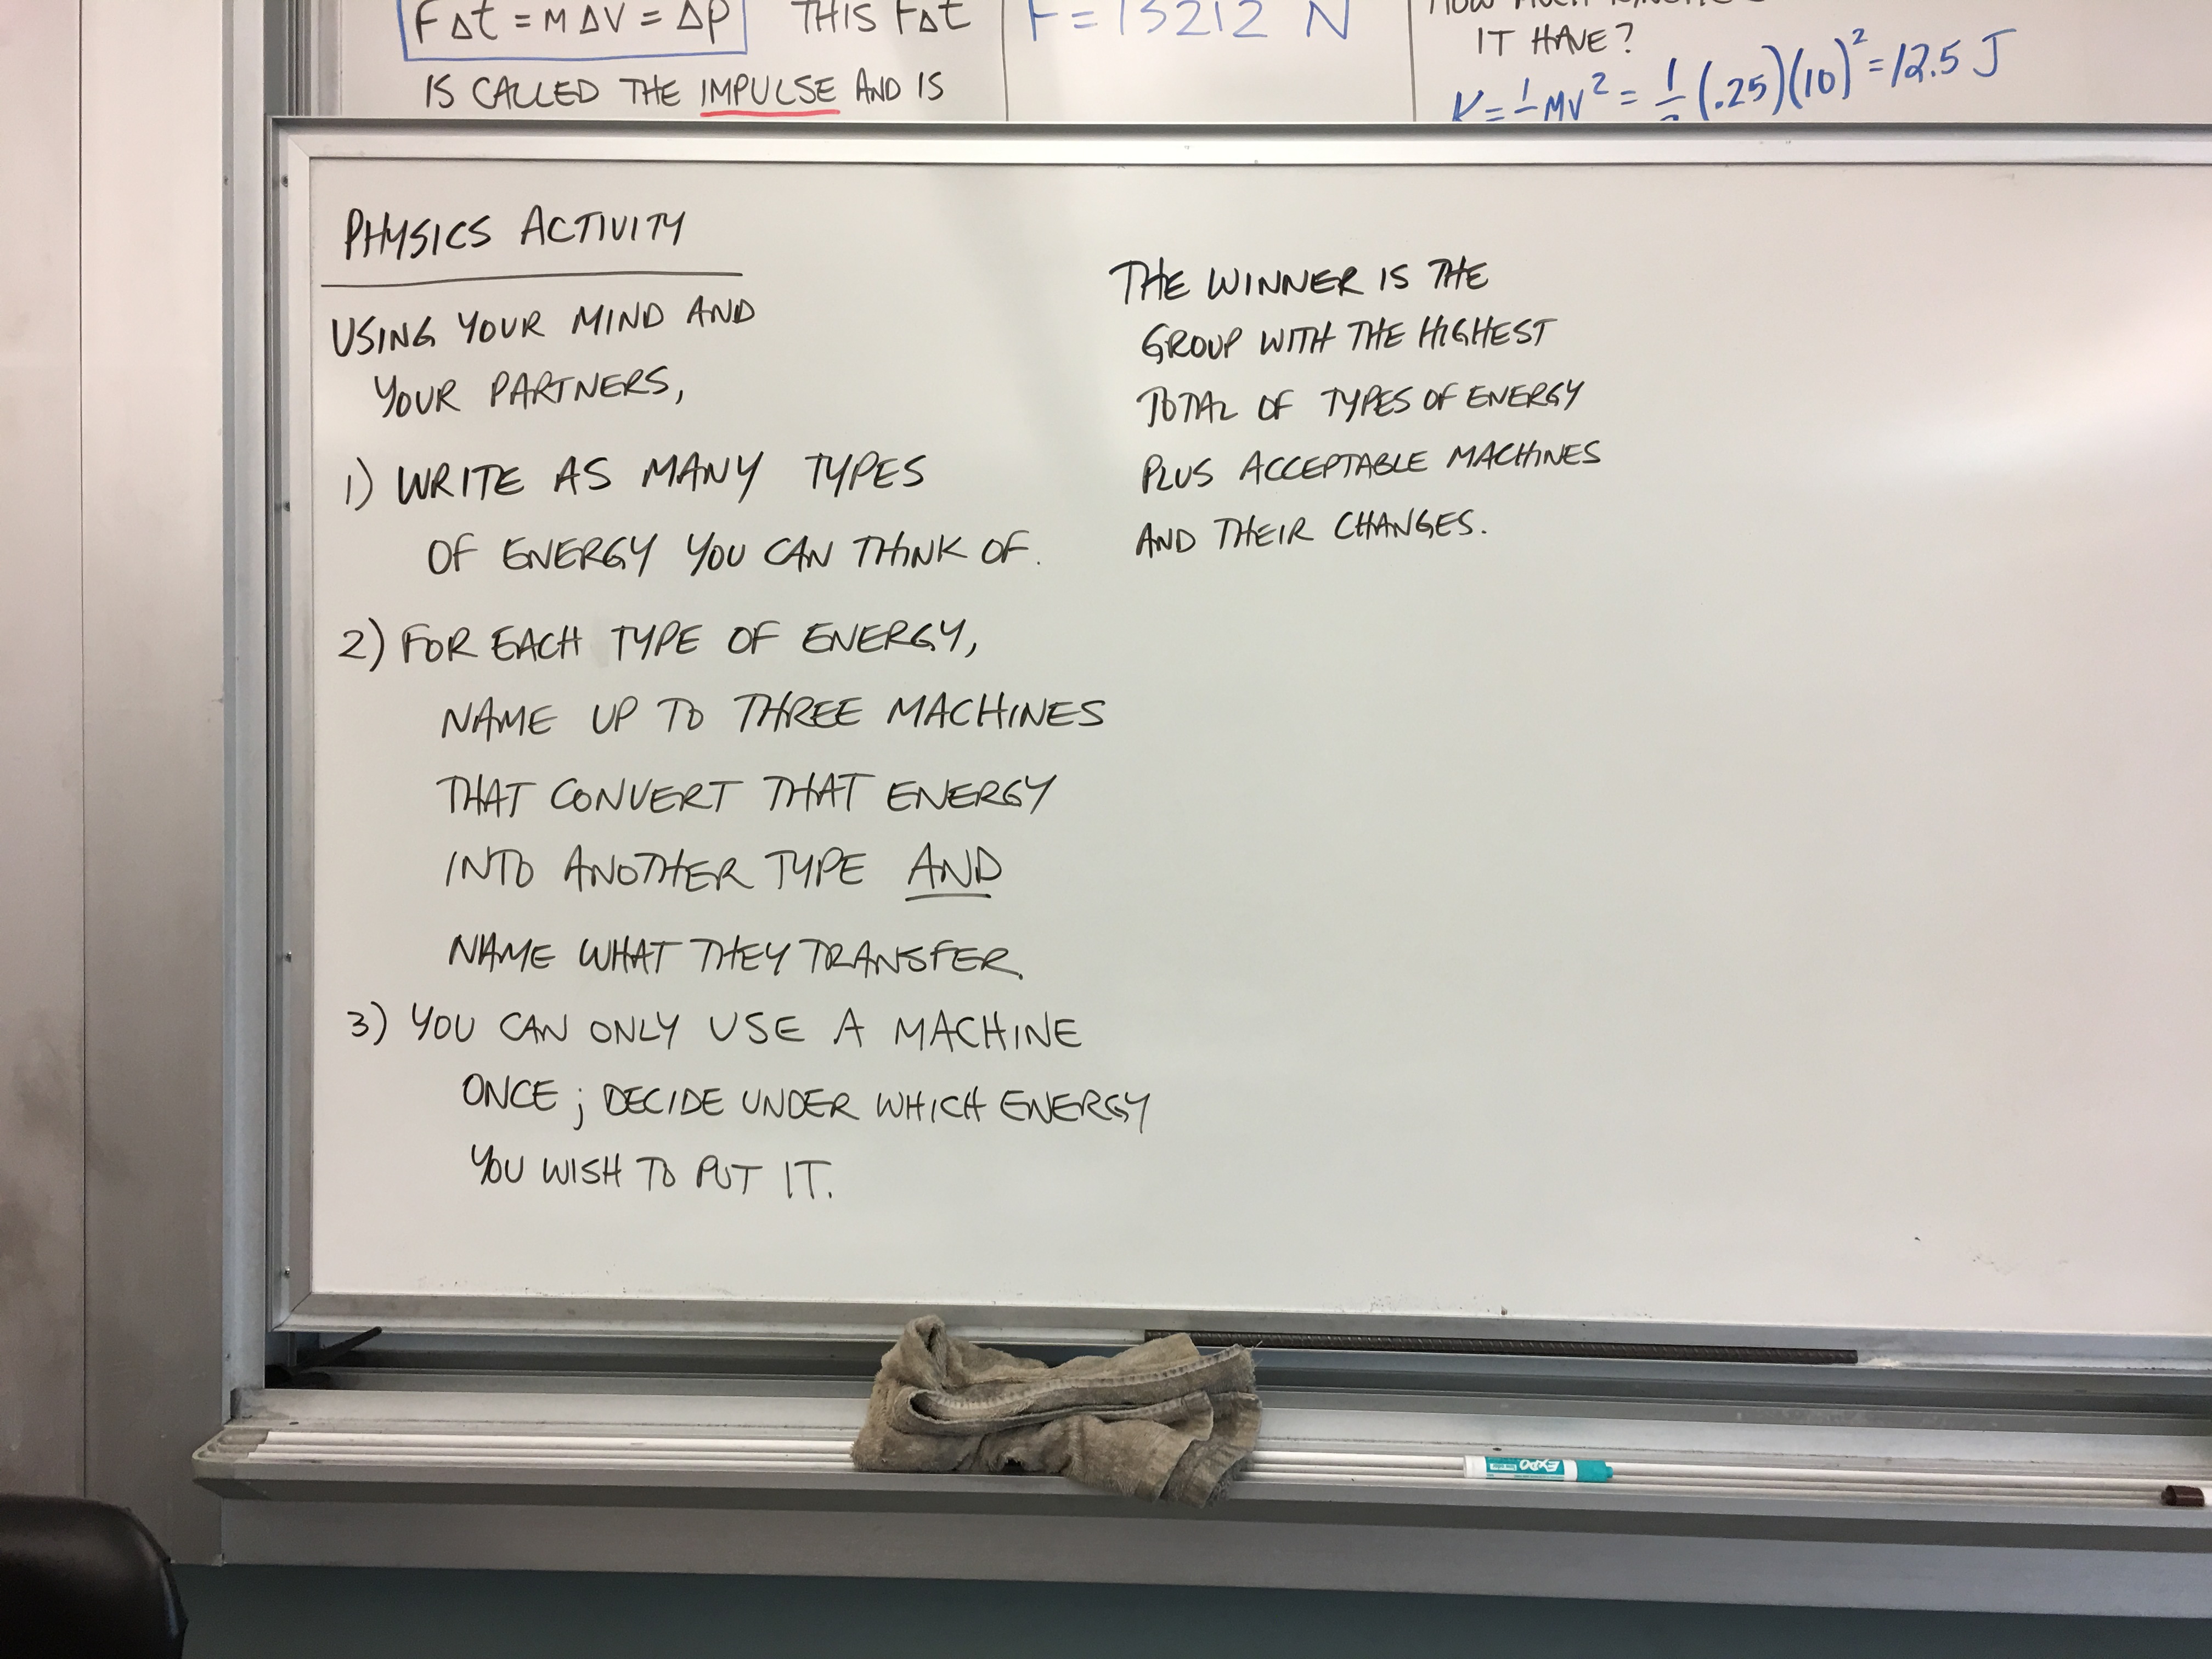 F∆t = M∆V = ∆p THIS F∆t
IS CALLED THE IMPULSE AND IS
F = 13212 N
IT HAVE?
K = ½MV² = ½(.25)(10)² = 12.5 J
PHYSICS ACTIVITY
USING YOUR MIND AND
YOUR PARTNERS,
1) WRITE AS MANY TYPES
OF ENERGY YOU CAN THINK OF.
2) FOR EACH TYPE OF ENERGY,
NAME UP TO THREE MACHINES
THAT CONVERT THAT ENERGY
INTO ANOTHER TYPE AND
NAME WHAT THEY TRANSFER.
3) YOU CAN ONLY USE A MACHINE
ONCE; DECIDE UNDER WHICH ENERGY
YOU WISH TO PUT IT.
THE WINNER IS THE
GROUP WITH THE HIGHEST
TOTAL OF TYPES OF ENERGY
PLUS ACCEPTABLE MACHINES
AND THEIR CHANGES.
EXPO